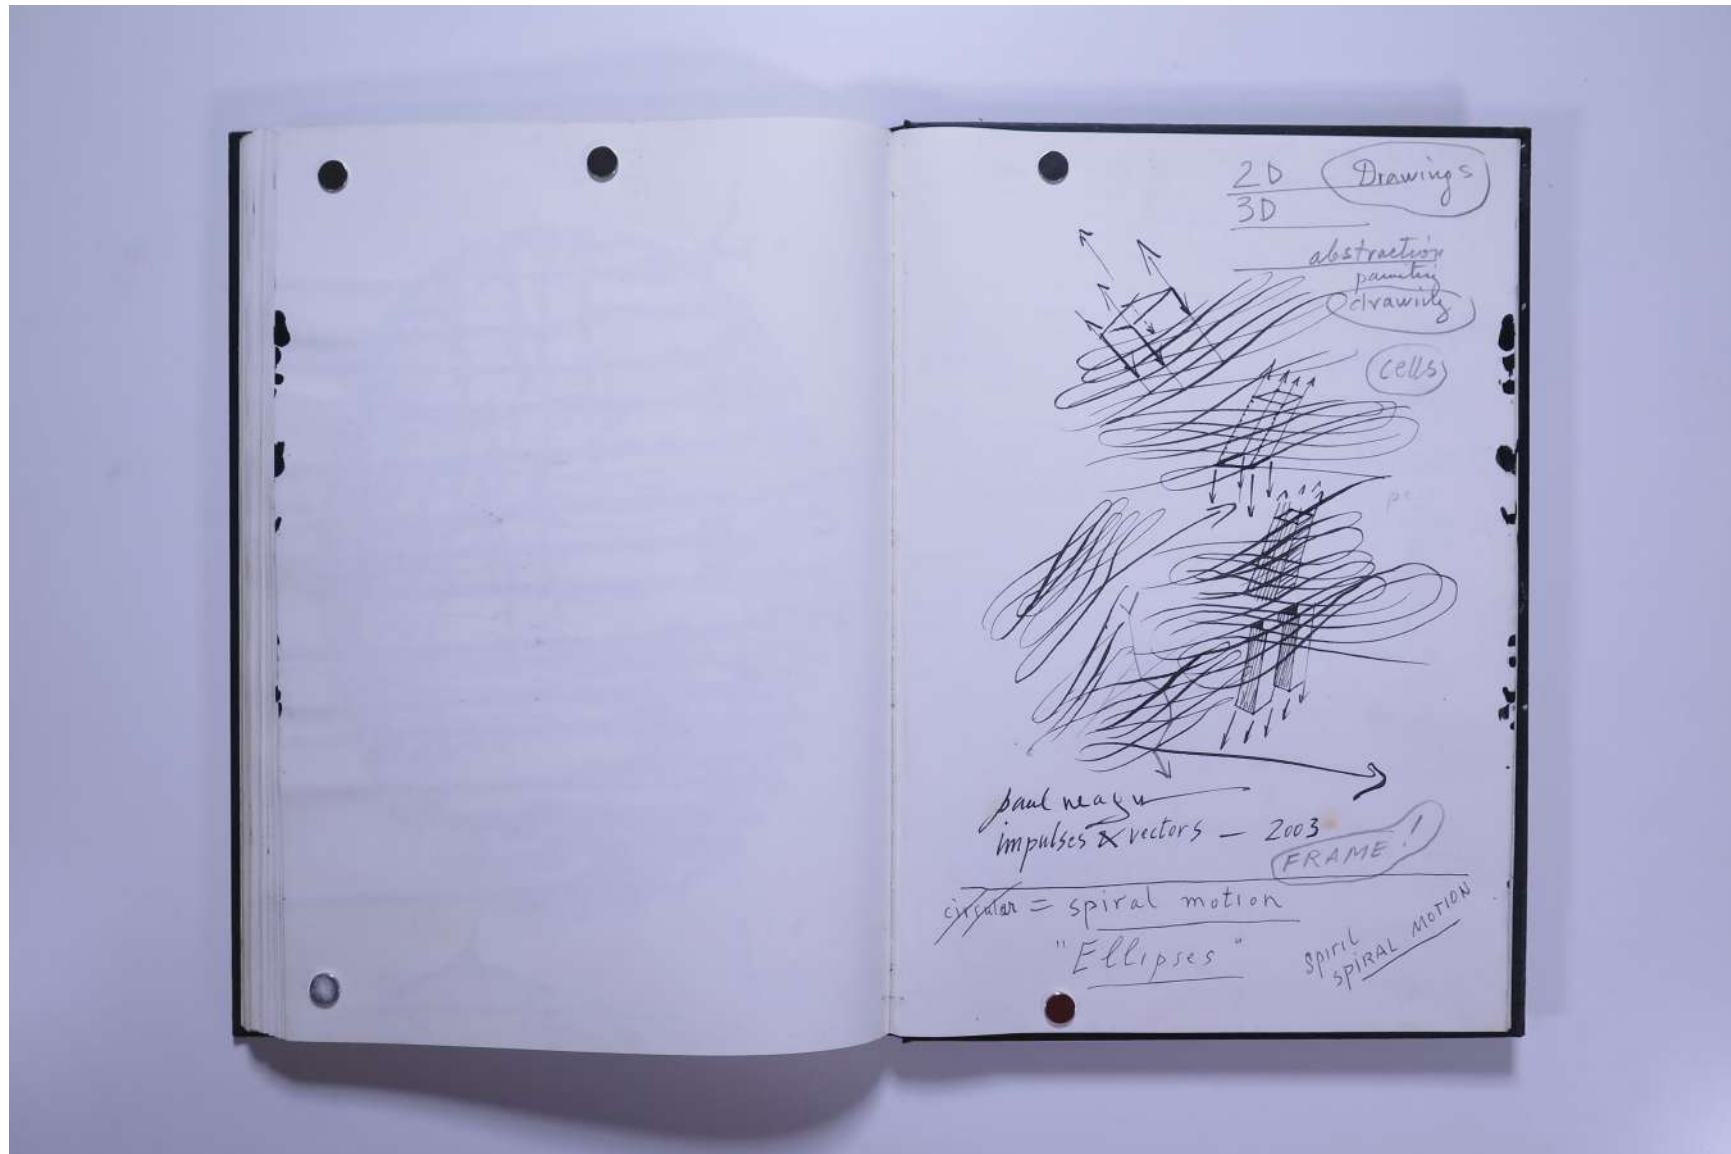 2D Drawings
3D
abstraction
painting
drawing
cells
paul neagu
impulses & vectors — 2003
FRAME!
circular = spiral motion
"Ellipses"
spiril
SPIRAL MOTION